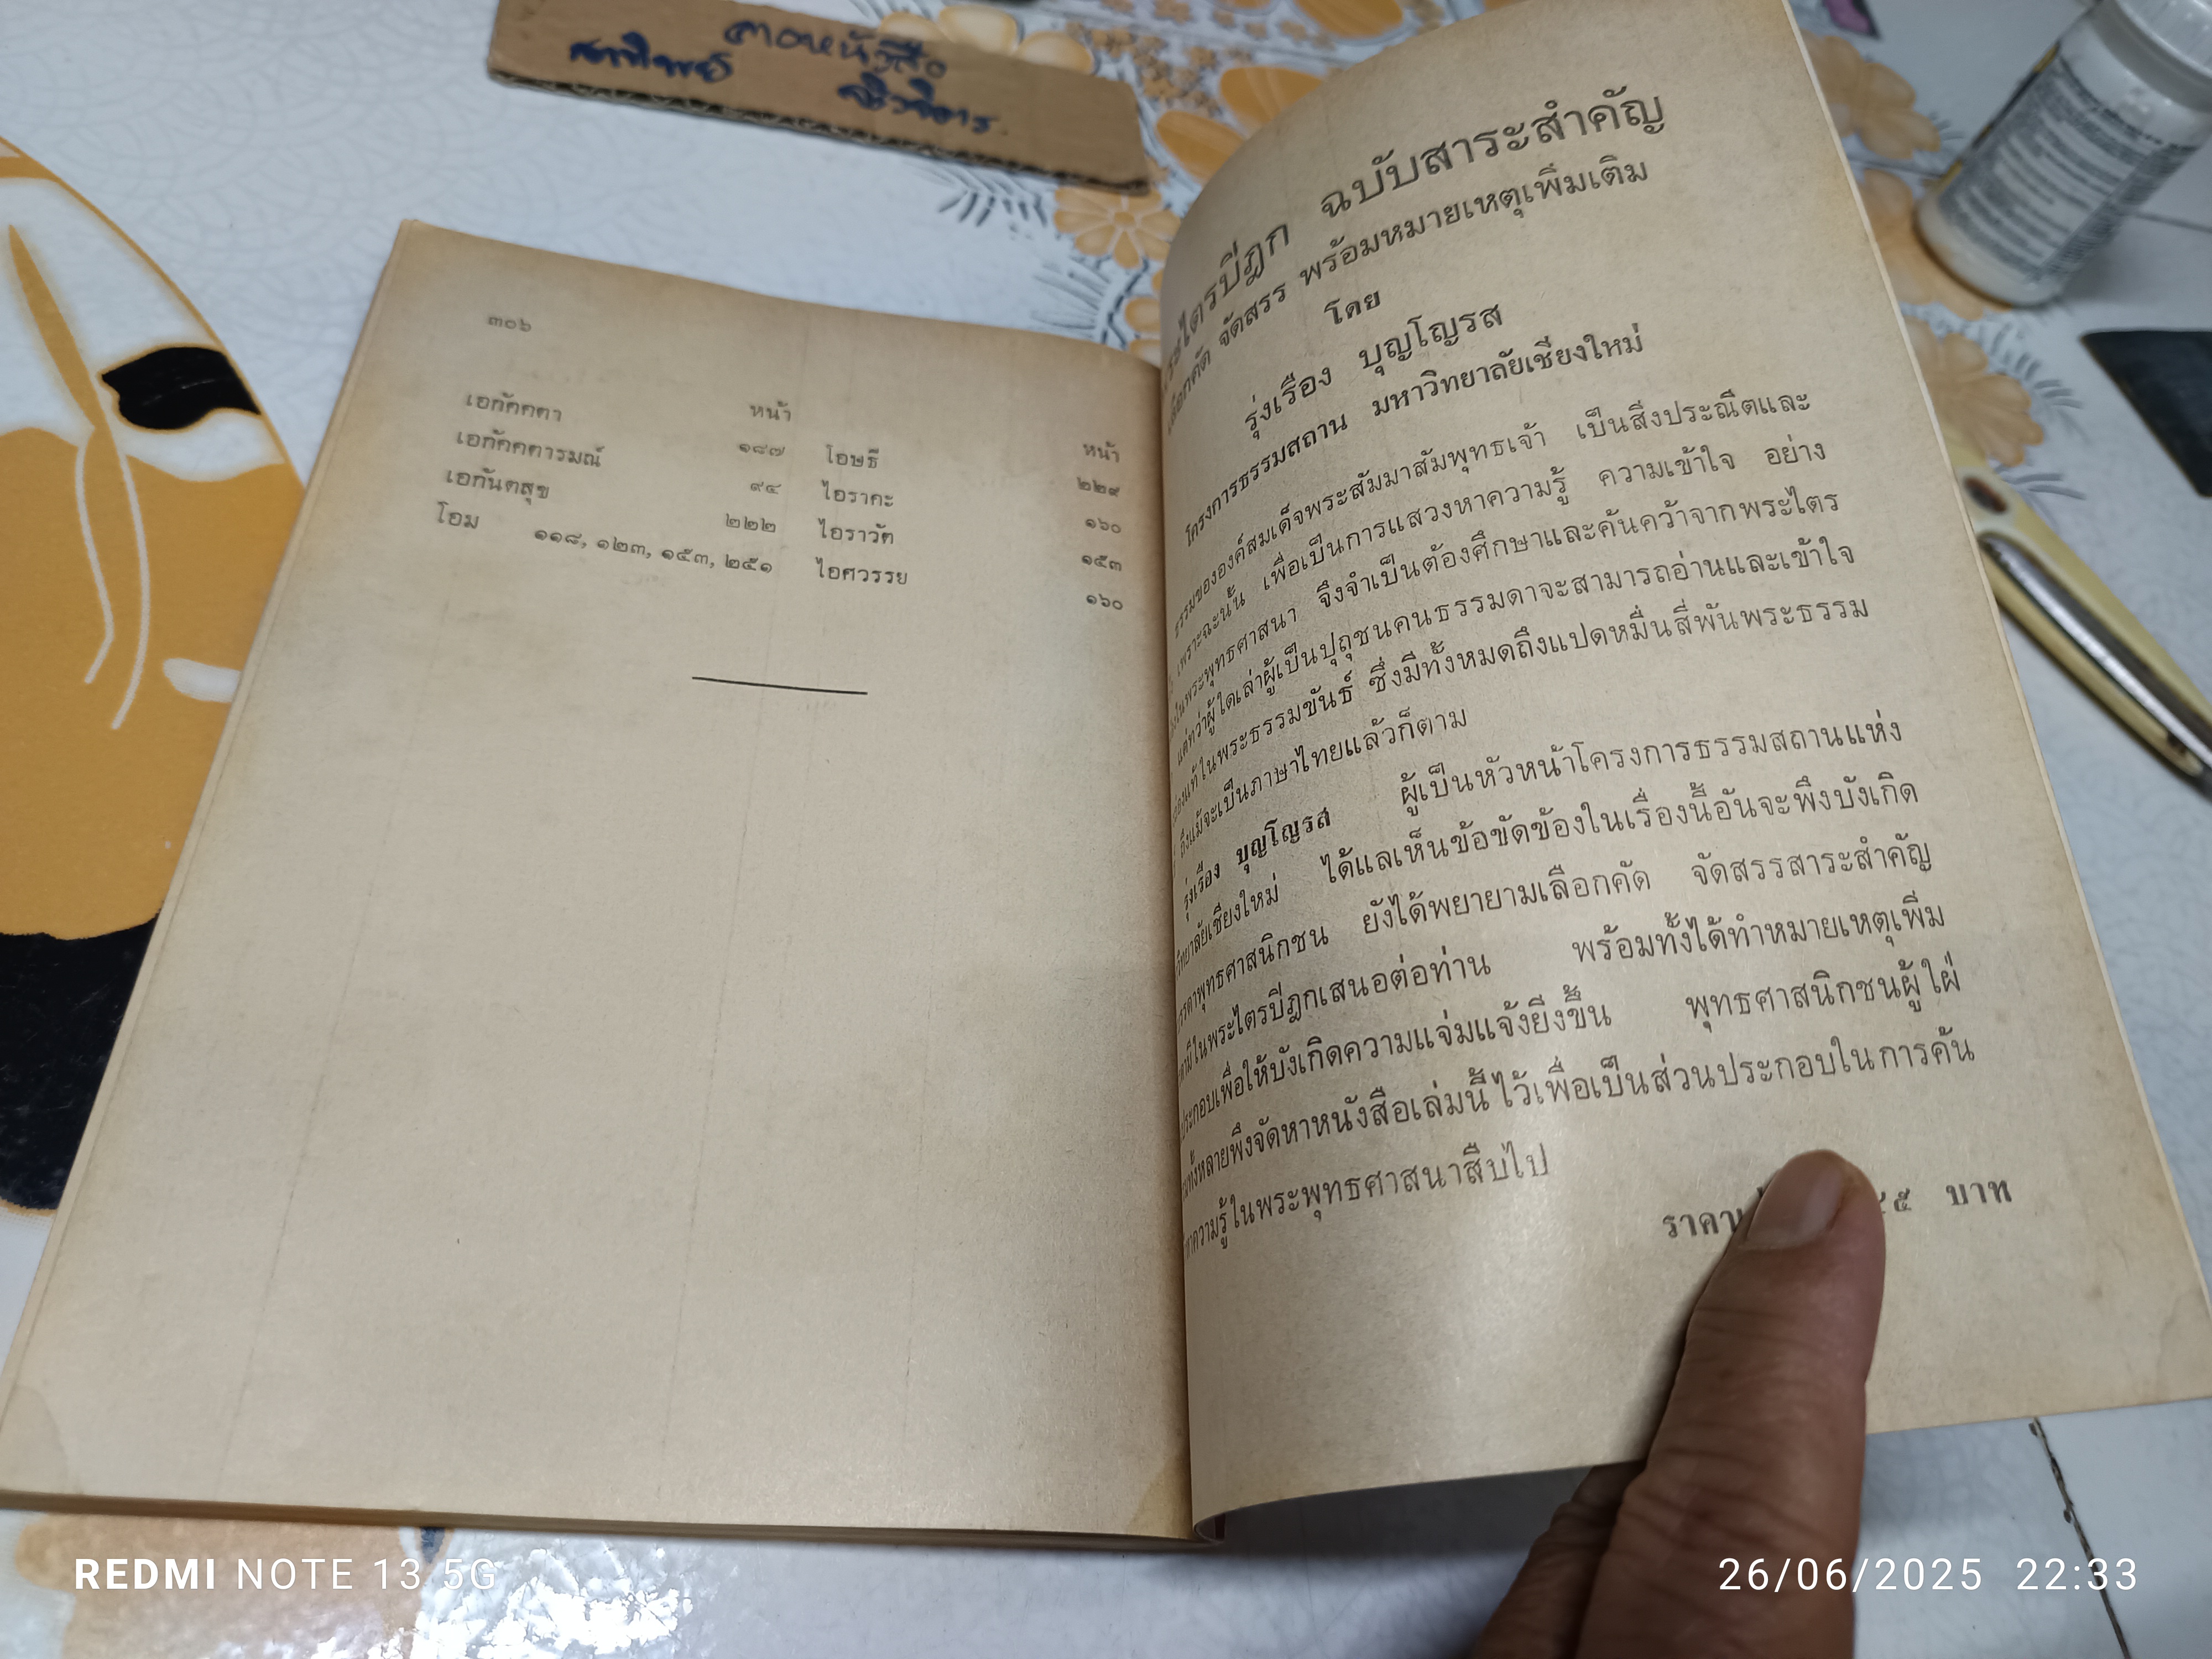 ๓๐๖
หน้า หน้า
เอกัคคตา ๑๘๗ โอษธี ๒๒๙
เอกัคคตารมณ์ ๙๔ ไอราคะ ๑๖๐
เอกันตสุข ๒๒๒ ไอราวัต ๑๕๓
โอม ๑๑๘, ๑๒๓, ๑๕๓, ๒๕๑ ไอศวรรย ๑๖๐
พระไตรปิฎก ฉบับสาระสำคัญ
เลือกคัด จัดสรร พร้อมหมายเหตุเพิ่มเติม
โดย
รุ่งเรือง บุญโญรส
โครงการธรรมสถาน มหาวิทยาลัยเชียงใหม่
ธรรมขององค์สมเด็จพระสัมมาสัมพุทธเจ้า เป็นสิ่งประณีตและ
เพราะฉะนั้น เพื่อเป็นการแสวงหาความรู้ ความเข้าใจ อย่าง
ในพระพุทธศาสนา จึงจำเป็นต้องศึกษาและค้นคว้าจากพระไตร
แต่ทว่าผู้ใดเล่าผู้เป็นปุถุชนคนธรรมดาจะสามารถอ่านและเข้าใจ
ในพระธรรมขันธ์ ซึ่งมีทั้งหมดถึงแปดหมื่นสี่พันพระธรรม
ถึงแม้จะเป็นภาษาไทยแล้วก็ตาม
รุ่งเรือง บุญโญรส ผู้เป็นหัวหน้าโครงการธรรมสถานแห่ง
วิทยาลัยเชียงใหม่ ได้แลเห็นข้อขัดข้องในเรื่องนี้อันจะพึงบังเกิด
พุทธศาสนิกชน ยังได้พยายามเลือกคัด จัดสรรสาระสำคัญ
ในพระไตรปิฎกเสนอต่อท่าน พร้อมทั้งได้ทำหมายเหตุเพิ่ม
ประกอบเพื่อให้บังเกิดความแจ่มแจ้งยิ่งขึ้น พุทธศาสนิกชนผู้ใฝ่
ทั้งหลายพึงจัดหาหนังสือเล่มนี้ไว้เพื่อเป็นส่วนประกอบในการค้น
ความรู้ในพระพุทธศาสนาสืบไป
ราคา ๕ บาท
REDMI NOTE 13 5G
26/06/2025 22:33